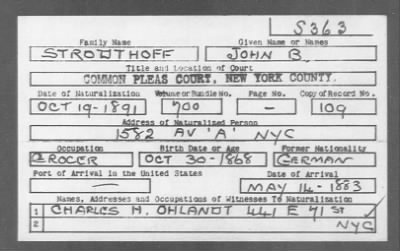 S363
Family Name Given Name or Names
STROUTHOFF JOHN B.
Title and Location of Court
COMMON PLEAS COURT, NEW YORK COUNTY.
Date of Naturalization Volume or Bundle No. Page No. Copy of Record No.
OCT 19-1891 700 — 109
Address of Naturalized Person
1582 AV 'A' NYC
Occupation Birth Date or Age Former Nationality
GROCER OCT 30-1868 GERMAN
Port of Arrival in the United States Date of Arrival
— MAY 14-1883
Names, Addresses and Occupations of Witnesses To Naturalization
1 CHARLES H. OHLANDT 441 E 71 ST
2 NYC